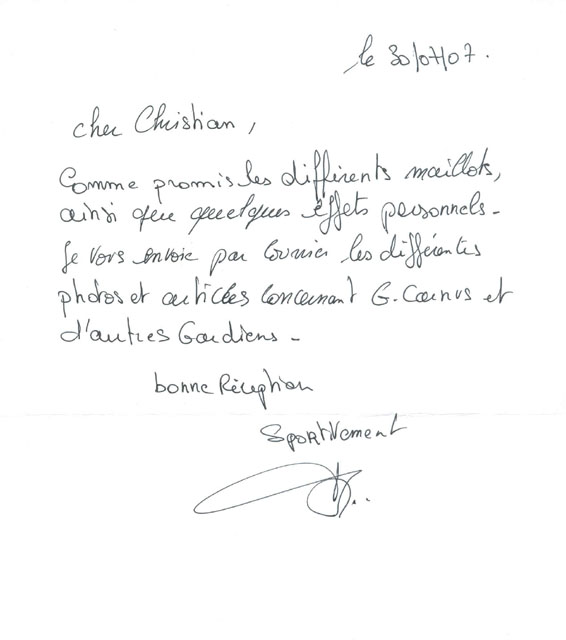 le 30/07/07.
cher Christian,
Comme promis les différents maillots,
ainsi que quelques effets personnels -
Je vous envoie par courrier les différentes
photos et articles concernant G. Carnus et
d'autres Gardiens -
bonne Réception
Sportivement